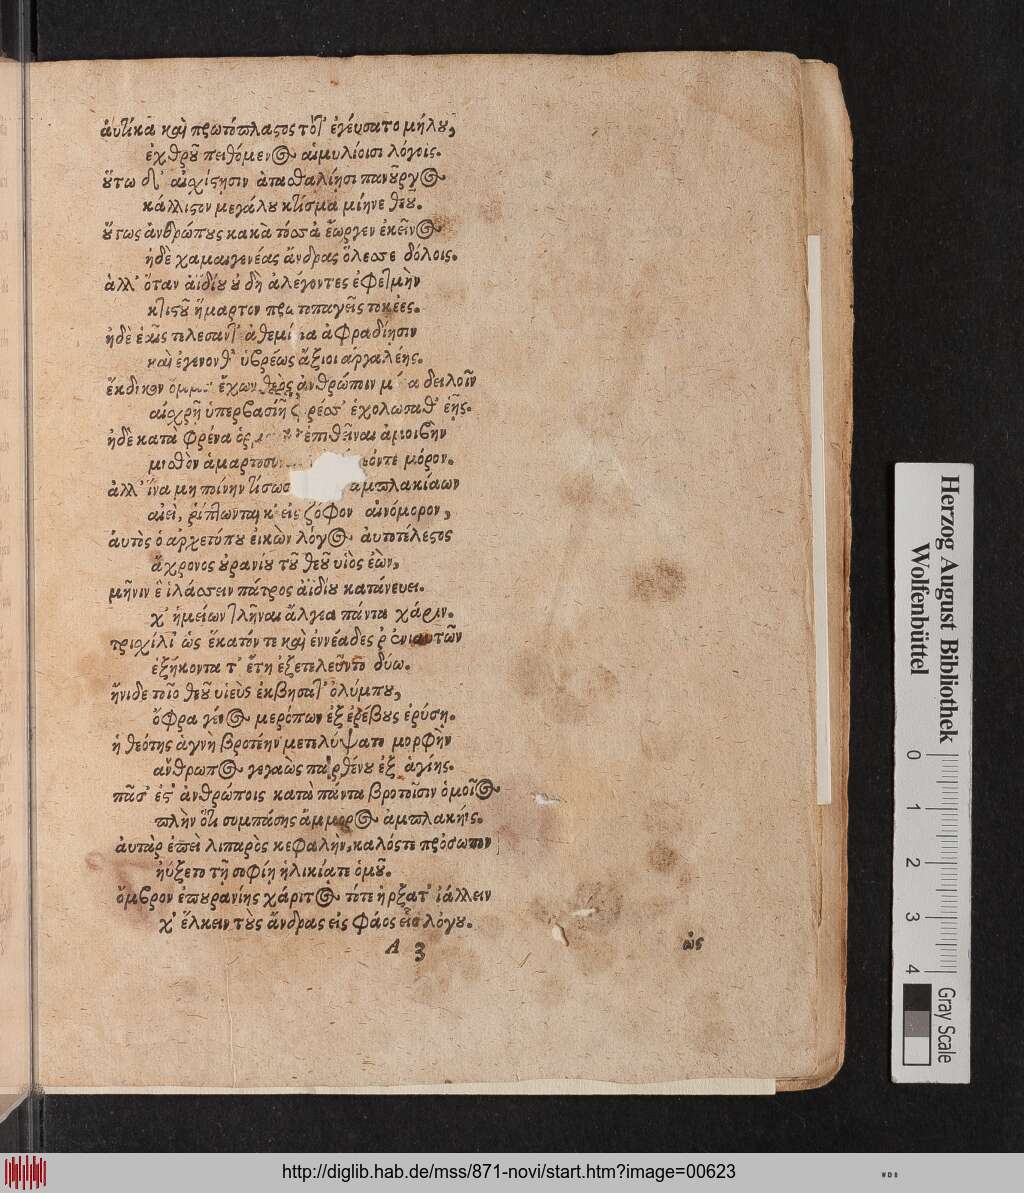 ἀυτίκα καὶ πρωτόπλαστος τότ' ἐγέυσατο μήλου,
ἐχθροῦ πειθόμενος αἱμυλίοισι λόγοις.
οὕτω δ' αἰσχίστησιν ἀτασθαλίησι πανοῦργος
κάλλιστον μεγάλου κτίσμα μίηνε θεοῦ.
οὕτως ἀνθρώπους κακὰ τόσσα ἔωργεν ἐκεῖνος
ἠδὲ χαμαιγενέας ἄνδρας ὄλεσσε δόλοις.
ἀλλ' ὅταν ἀϊδίου οὐ δὴ ἀλέγοντες ἐφετμὴν
κτιστοῦ ἥμαρτον πρωτοπαγεῖς τοκέες.
ἠδὲ ἑκὼς τέλεσαντ' ἀθεμί ια ἀφραδίησιν
καὶ ἐγένονθ' ὑβρέως ἄξιοι ἀργαλέης.
ἔκδικον ἔχων θεὸς ἀνθρώποιν δειλοῖν
αἰσχρῇ ὑπερβασίῃ ἐχολωσαθ' ἑῇς.
ἠδὲ κατὰ φρένα ἐπιθεῖναι ἀμοιβὴν
μισθὸν όντε μόρον.
ἀλλ' ἵνα μη ποίνην τίσωσ αμπλακίαων
αἰεὶ, ῥίπτωνται κ' εἰς ζόφον αἰνόμορον,
ἀυτὸς ὁ ἀρχετύπου ἐικὼν λόγος αὐτοτέλεστος
ἄχρονος οὐρανίου τοῦ θεοῦ υἱὸς ἐὼν,
μῆνιν ἓ ἱλάσσειν πάτρος ἀϊδίου κατάνευει.
χ' ἡμείων τλῆναι ἄλγεα πάντα χάριν.
τρισχίλι' ὡς ἑκατόν τε καὶ ἐννέαδες ἐνιαυτῶν
ἑξήκοντα τ' ἔτη ἐξετελεῦντο δύω.
ἤνιδε τοῖο θεοῦ υἱεὺς ἐκβησατ' ὀλύμπου,
ὄφρα γένος μερόπων ἐξ ἐρέβους ἐρύσῃ.
ἡ θεότης ἁγνὴ βροτέην μετελύψατο μορφὴν
ἄνθρωπος γεγαὼς παρθένου ἐξ ἁγίης.
πᾶσ' ἐστ' ἀνθρώποις κατὰ πάντα βροτοῖσιν ὁμοῖος
πλὴν ὅτι συμπάσης ἄμμορος ἀμπλακίης.
ἀυτὰρ ἐπεὶ λιπαρὸς κεφαλὴν, καλόστε πρόσωπον
ηὔξετο τῇ σοφίῃ ἡλικίατε ὁμοῦ.
ὄμβρον ἐπουρανίης χάριτος τότε ἠρξατ' ἰάλλειν
χ' ἕλκειν τοὺς ἄνδρας εἰς φάος εἷο λόγου.
A 3 ὡς
Herzog August Bibliothek
Wolfenbüttel
0 1 2 3 4
Gray Scale
http://diglib.hab.de/mss/871-novi/start.htm?image=00623